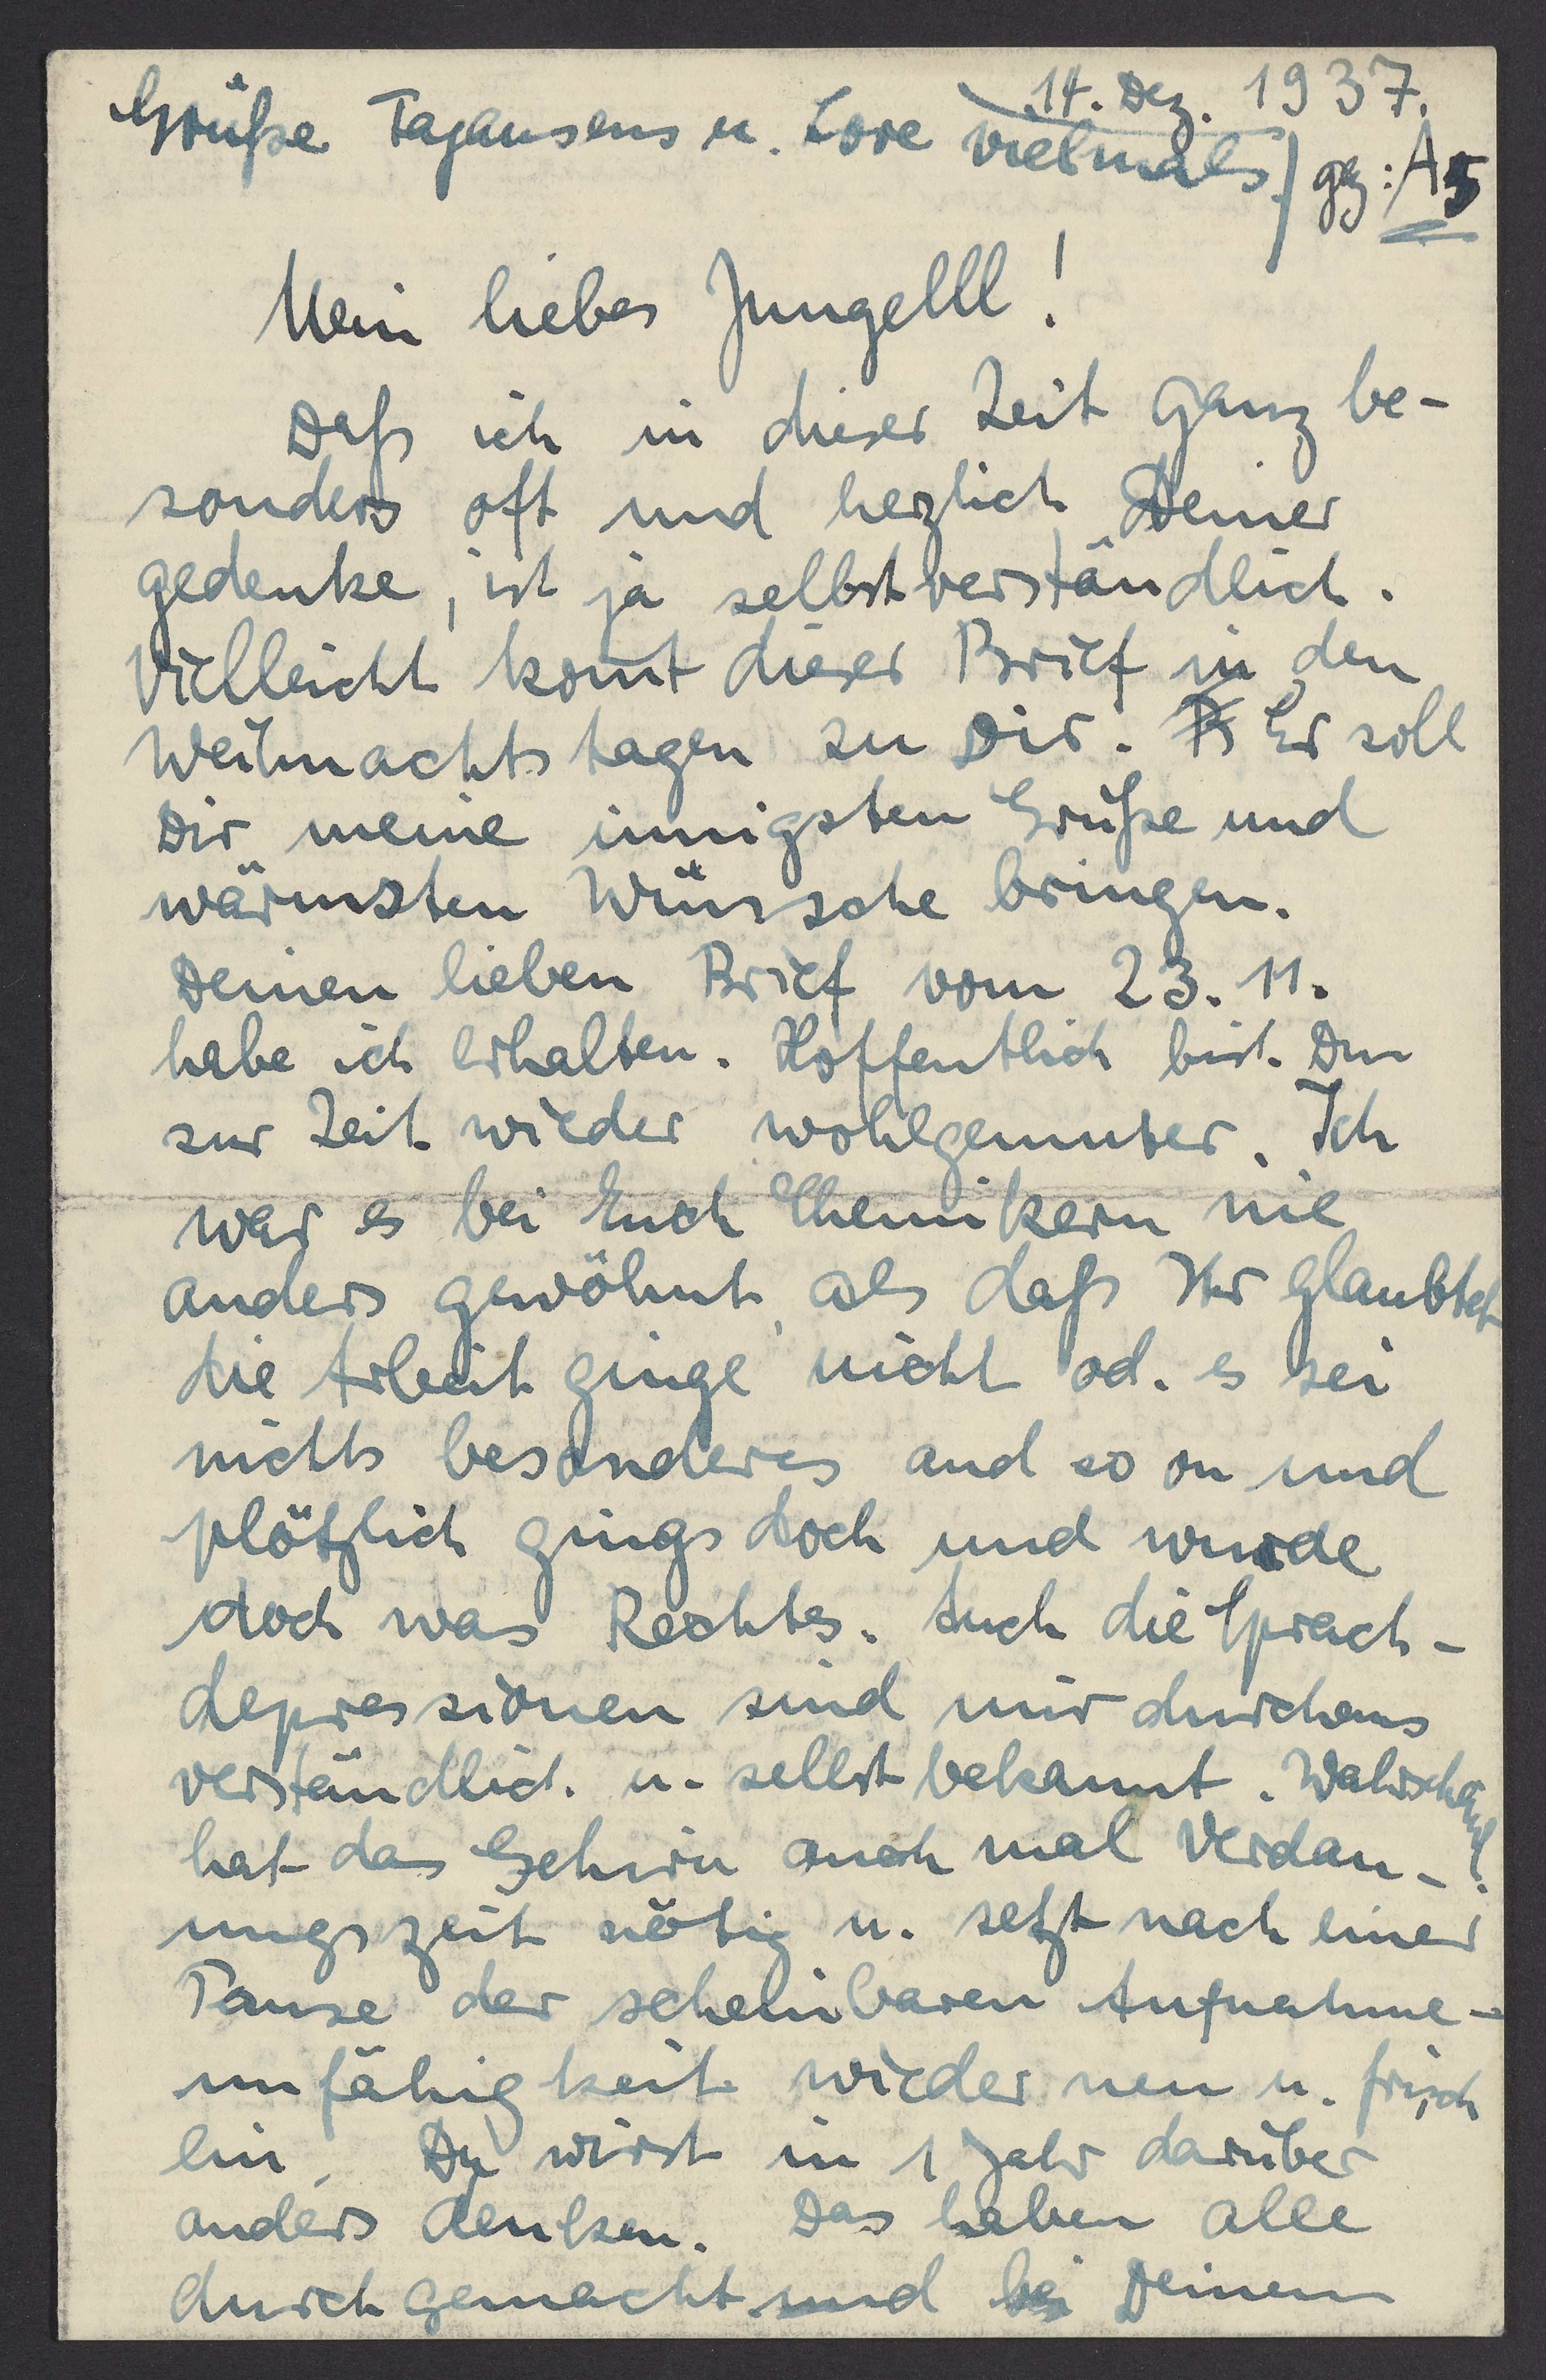 14. Dez. 1937.
Grüße Tajansens u. Lore vielmals! gez: A5
Mein liebes Jungelll!
Daß ich in dieser Zeit ganz be-
sonders oft und herzlich Deiner
gedenke, ist ja selbstverständlich.
Vielleicht komt dieser Brief in den
Weihnachtstagen zu Dir. Er soll
Dir meine innigsten Grüße und
wärmsten Wünsche bringen.
Deinen lieben Brief vom 23. 11.
habe ich erhalten. Hoffentlich bist Du
zur Zeit wieder wohlgemuter. Ich
war es bei Euch Chemikern nie
anders gewöhnt, als daß Ihr glaubtet
die Arbeit ginge nicht od. es sei
nichts besonderes and so on und
plötzlich gings doch und wurde
doch was Rechtes. Auch die Sprach-
depressionen sind mir durchaus
verständlich u. selbst bekannt. Wahrscheinl.
hat das Gehirn auch mal Verdau-
ungszeit nötig u. setzt nach einer
Pause der scheinbaren Aufnahme-
unfähigkeit wieder neu u. frisch
ein. Du wirst in 1 Jahr darüber
anders denken. Das haben alle
durchgemacht und bei Deinem